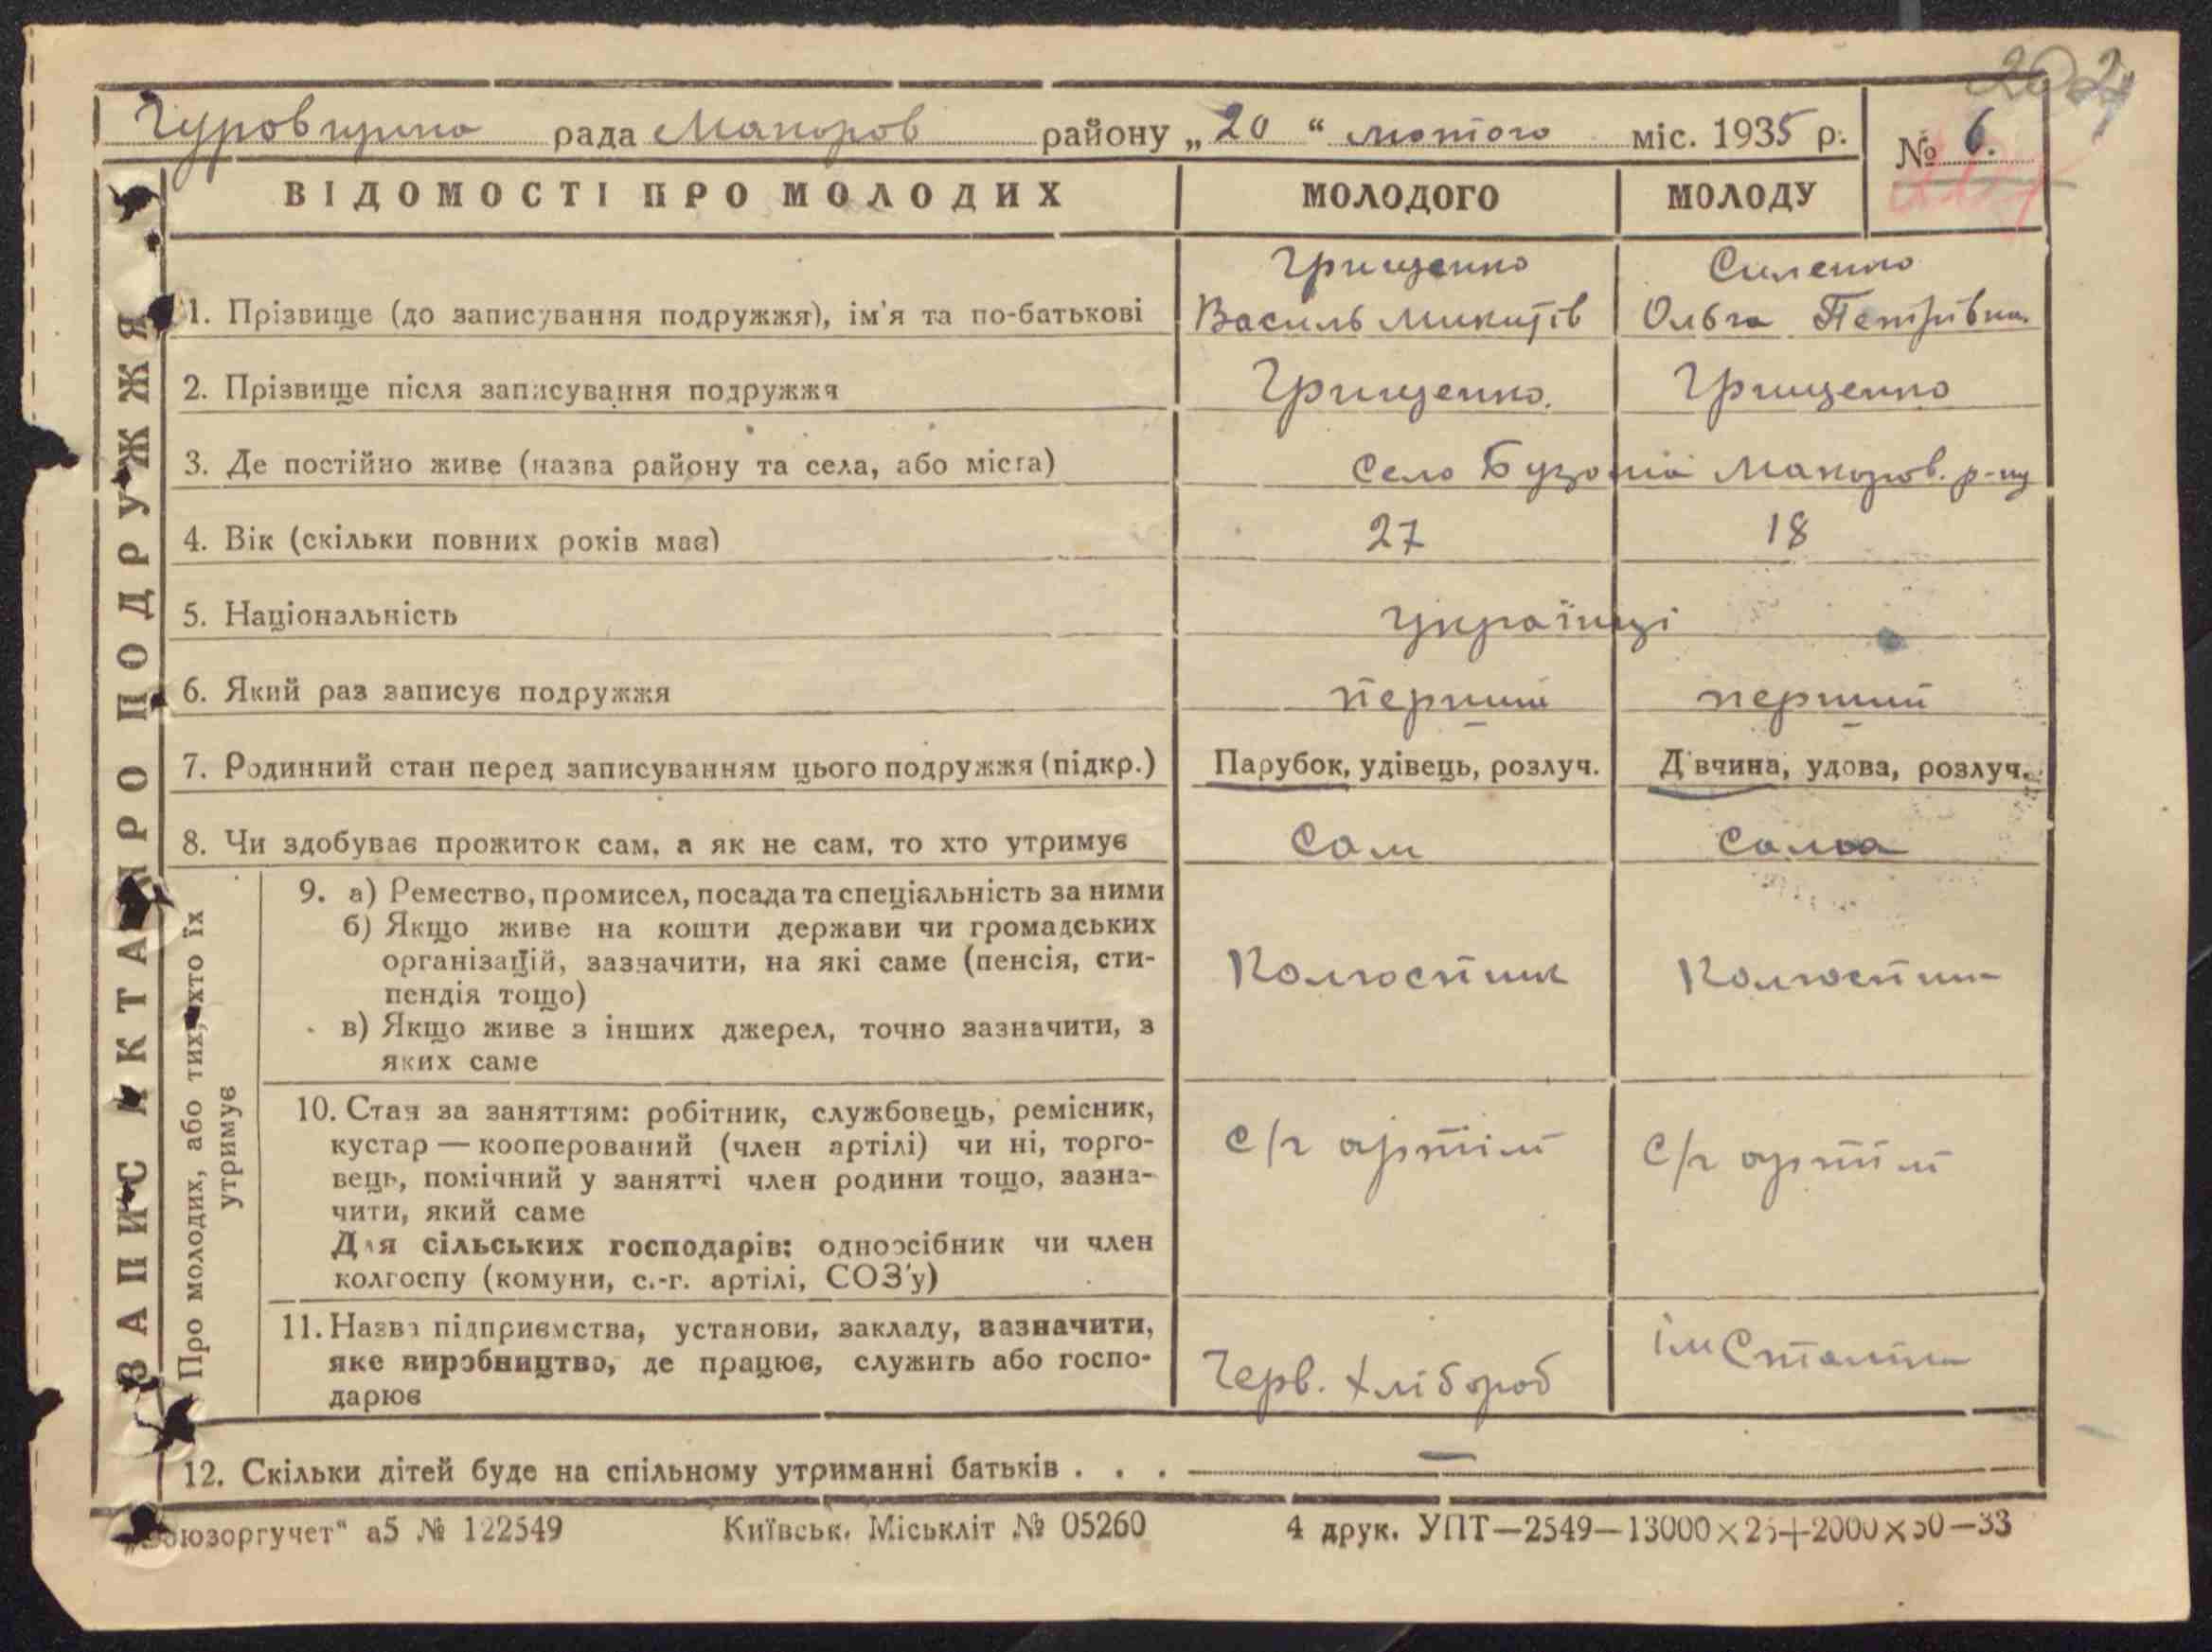 Гуровщина рада Макаров району „20“ лютого міс. 1935 р.
№ 6.
ЗАПИС АКТА ПРО ПОДРУЖЖЯ
ВІДОМОСТІ ПРО МОЛОДИХ МОЛОДОГО МОЛОДУ
Грищенко Силенко
1. Прізвище (до записування подружжя), ім'я та по-батькові Василь Микитів Ольга Петрівна
2. Прізвище після записування подружжя Грищенко. Грищенко
3. Де постійно живе (назва району та села, або міста) Село Бузова Макаров. р-ну
4. Вік (скільки повних років має) 27 18
5. Національність Українці
6. Який раз записує подружжя перший перший
7. Родинний стан перед записуванням цього подружжя (підкр.) Парубок, удівець, розлуч. Дівчина, удова, розлуч.
8. Чи здобуває прожиток сам, а як не сам, то хто утримує Сам Сама
Про молодих, або тих, хто їх утримує
9. а) Ремество, промисел, посада та спеціальність за ними
б) Якщо живе на кошти держави чи громадських
організацій, зазначити, на які саме (пенсія, сти-
пендія тощо)
в) Якщо живе з інших джерел, точно зазначити, з
яких саме
Колгоспник Колгоспни
10. Стан за заняттям: робітник, службовець, ремісник,
кустар — кооперований (член артілі) чи ні, торго-
вець, помічний у занятті член родини тощо, зазна-
чити, який саме
Для сільських господарів: одноосібник чи член
колгоспу (комуни, с.-г. артілі, СОЗ'у)
с/г артілі с/г артілі
11. Назва підприємства, установи, закладу, зазначити,
яке виробництво, де працює, служить або госпо-
дарює
Черв. Хлібороб ім Сталіна
12. Скільки дітей буде на спільному утриманні батьків . . . —
„Союзоргучет“ а5 № 122549 Київськ. Міськліт № 05260 4 друк. УПТ—2549—13000×25+2000×50—33